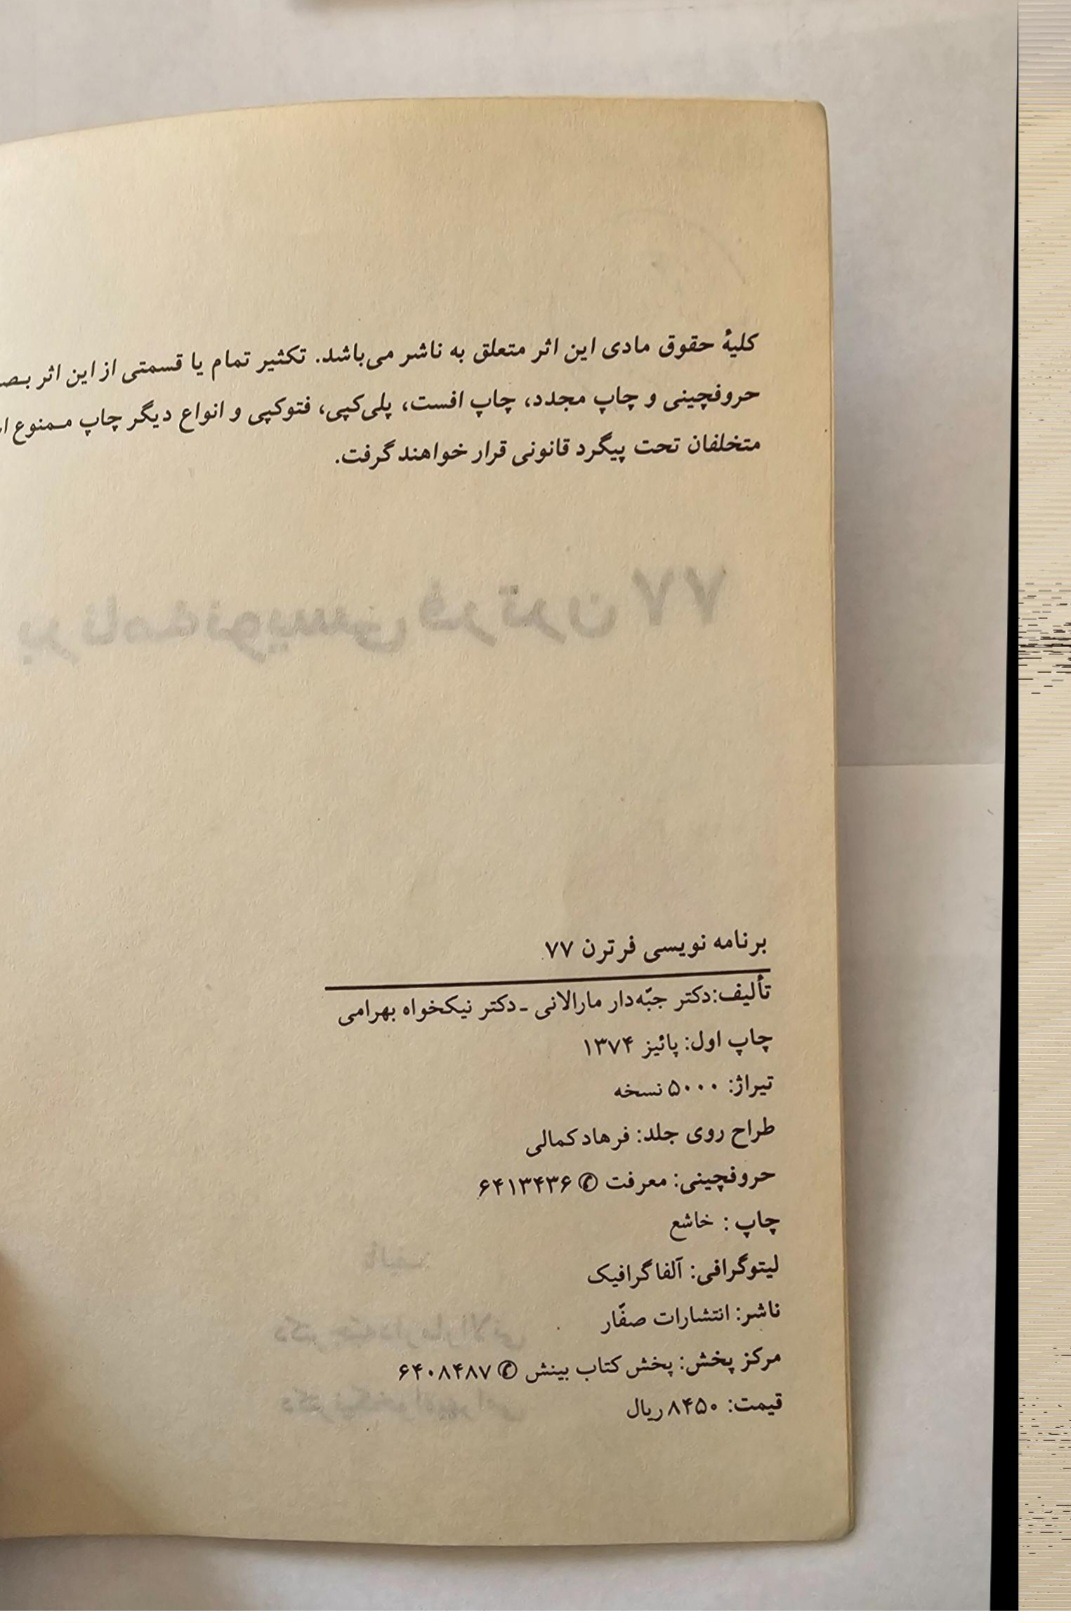 کلیهٔ حقوق مادی این اثر متعلق به ناشر می‌باشد. تکثیر تمام یا قسمتی از این اثر
حروفچینی و چاپ مجدد، چاپ افست، پلی‌کپی، فتوکپی و انواع دیگر چاپ مـمنوع
متخلفان تحت پیگرد قانونی قرار خواهند گرفت.
برنامه نویسی فرترن ۷۷
تألیف:دکتر جبّه‌دار مارالانی ـ دکتر نیکخواه بهرامی
چاپ اول: پائیز ۱۳۷۴
تیراژ: ۵۰۰۰ نسخه
طراح روی جلد: فرهاد کمالی
حروفچینی: معرفت ✆ ۶۴۱۳۴۳۶
چاپ : خاشع
لیتوگرافی: آلفا گرافیک
ناشر: انتشارات صفّار
مرکز پخش: پخش کتاب بینش ✆ ۶۴۰۸۴۸۷
قیمت: ۸۴۵۰ ریال